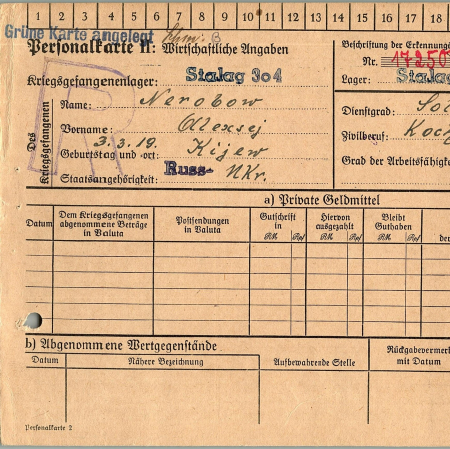 1 2 3 4 5 6 7 8 9 10 11 12 13 14 15 16 17 18
Grüne Karte angelegt
Personalkarte II: Wirtschaftliche Angaben
Beschriftung der Erkennungs
Nr. 17250
Kriegsgefangenenlager: Stalag 304
Lager: Stalag
Des Kriegsgefangenen
Name: Nerobow
Vorname: Alexsej
Geburtstag und -ort: 3.3.19. Kijew
Staatsangehörigkeit: Russ- Ukr.
Dienstgrad: Sol
Zivilberuf: Koch
Grad der Arbeitsfähigkeit
a) Private Geldmittel
Datum
Dem Kriegsgefangenen abgenommene Beträge in Valuta
Postsendungen in Valuta
Gutschrift in
RM Rpf
Hiervon ausgezahlt
RM Rpf
Bleibt Guthaben
RM Rpf
der
b) Abgenommene Wertgegenstände
Datum
Nähere Bezeichnung
Aufbewahrende Stelle
Rückgabevermerk
mit Datum
Personalkarte 2